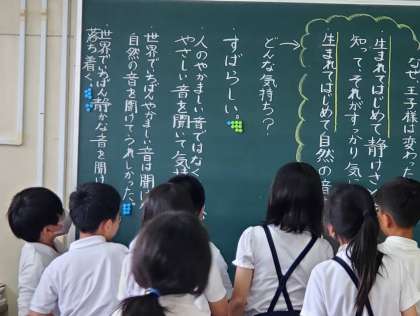 なぜ王子様は変わった
生まれてはじめて静けさ
知って、それがすっかり気に
生まれてはじめて自然の音
どんな気持ち?
すばらしい。
人のやかましい音ではなく
やさしい音を聞いて気
世界でいちばんやかましい音は聞け
自然の音を聞けてうれしかった。
世界でいちばん静かな音を聞け
落ち着く。